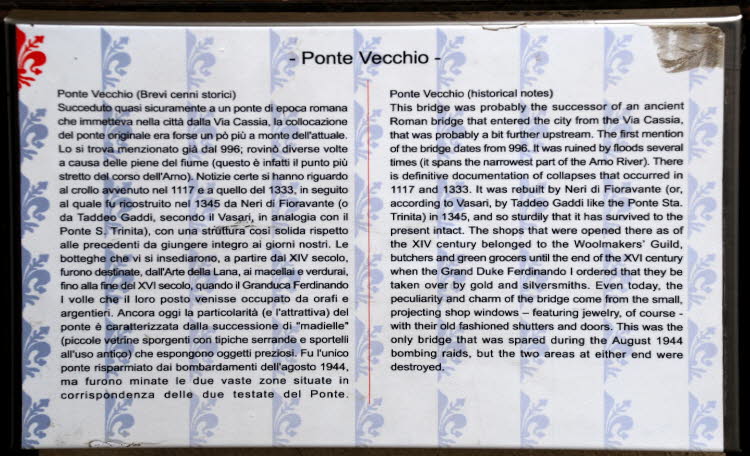 - Ponte Vecchio -
Ponte Vecchio (Brevi cenni storici)
Succeduto quasi sicuramente a un ponte di epoca romana
che immetteva nella città dalla Via Cassia, la collocazione
del ponte originale era forse un pò più a monte dell'attuale.
Lo si trova menzionato già dal 996; rovinò diverse volte
a causa delle piene del fiume (questo è infatti il punto più
stretto del corso dell'Arno). Notizie certe si hanno riguardo
al crollo avvenuto nel 1117 e a quello del 1333, in seguito
al quale fu ricostruito nel 1345 da Neri di Fioravante (o
da Taddeo Gaddi, secondo il Vasari, in analogia con il
Ponte S. Trinita), con una struttura così solida rispetto
alle precedenti da giungere integro ai giorni nostri. Le
botteghe che vi si insediarono, a partire dal XIV secolo,
furono destinate, dall'Arte della Lana, ai macellai e verdurai,
fino alla fine del XVI secolo, quando il Granduca Ferdinando
I volle che il loro posto venisse occupato da orafi e
argentieri. Ancora oggi la particolarità (e l'attrattiva) del
ponte è caratterizzata dalla successione di "madielle"
(piccole vetrine sporgenti con tipiche serrande e sportelli
all'uso antico) che espongono oggetti preziosi. Fu l'unico
ponte risparmiato dai bombardamenti dell'agosto 1944,
ma furono minate le due vaste zone situate in
corrispondenza delle due testate del Ponte.
Ponte Vecchio (historical notes)
This bridge was probably the successor of an ancient
Roman bridge that entered the city from the Via Cassia,
that was probably a bit further upstream. The first mention
of the bridge dates from 996. It was ruined by floods several
times (it spans the narrowest part of the Arno River). There
is definitive documentation of collapses that occurred in
1117 and 1333. It was rebuilt by Neri di Fioravante (or,
according to Vasari, by Taddeo Gaddi like the Ponte Sta.
Trinita) in 1345, and so sturdily that it has survived to the
present intact. The shops that were opened there as of
the XIV century belonged to the Woolmakers' Guild,
butchers and green grocers until the end of the XVI century
when the Grand Duke Ferdinando I ordered that they be
taken over by gold and silversmiths. Even today, the
peculiarity and charm of the bridge come from the small,
projecting shop windows – featuring jewelry, of course -
with their old fashioned shutters and doors. This was the
only bridge that was spared during the August 1944
bombing raids, but the two areas at either end were
destroyed.